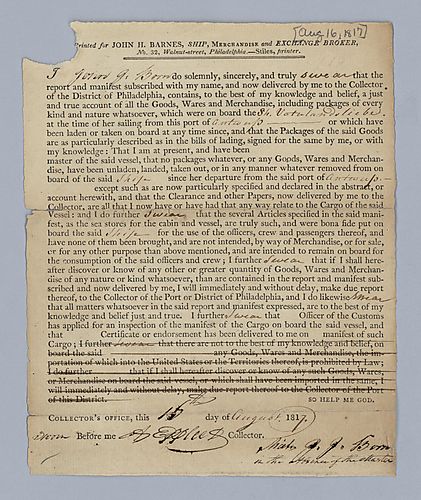 [Aug 16, 1817]
Printed for JOHN H. BARNES, SHIP, MERCHANDISE and EXCHANGE BROKER,
No. 32, Walnut-street, Philadelphia.—Stiles, printer.
I do solemnly, sincerely, and truly swear that the
report and manifest subscribed with my name, and now delivered to the Collector
of the District of Philadelphia, contains, to the best of my knowledge and belief, a just
and true account of all the Goods, Wares and Merchandise, including packages of every
kind and nature whatsoever, which were on board the
at the time of her sailing from this port of or which have
been laden or taken on board at any time since, and that the Packages of the said Goods
are as particularly described as in the bills of lading, signed for the same by me, or with
my knowledge: That I am at present, and have been
master of the said vessel, that no packages whatever, or any Goods, Wares and Merchan-
dise, have been unladen, landed, taken out, or in any manner whatever removed from on
board of the said Ship since her departure from the said port of
except such as are now particularly specified and declared in the abstract, or
account herewith, and that the Clearance and other Papers, now delivered by me to the
Collector, are all that I now have or have had that any way relate to the Cargo of the said
Vessel: and I do further swear that the several Articles specified in the said mani-
fest, as the sea stores for the cabin and vessel, are truly such, and were bona fide put on
board the said Ship for the use of the officers, crew and passengers thereof, and
have none of them been brought, and are not intended, by way of Merchandise, or for sale,
or for any other purpose than above mentioned, and are intended to remain on board for
the consumption of the said officers and crew; I further swear that if I shall here-
after discover or know of any other or greater quantity of Goods, Wares and Merchan-
dise of any nature or kind whatsoever, than are contained in the report and manifest sub-
scribed and now delivered by me, I will immediately and without delay, make due report
thereof, to the Collector of the Port or District of Philadelphia, and I do likewise swear
that all matters whatsoever in the said report and manifest expressed, are to the best of my
knowledge and belief just and true. I further swear that Officer of the Customs
has applied for an inspection of the manifest of the Cargo on board the said vessel, and
that Certificate or endorsement has been delivered to me on manifest of such
Cargo; I further swear that there are not to the best of my knowledge and belief, on
board the said any Goods, Wares and Merchandise, the im-
portation of which into the United States or the Territories thereof, is prohibited by Law;
I do further that if I shall hereafter discover or know of any such Goods, Wares,
or Merchandise on board the said vessel, or which shall have been imported in the same, I
will immediately and without delay, make due report thereof to the Collector of the Port
of this District. SO HELP ME GOD.
COLLECTOR'S OFFICE, this 16th day of August, 1817
Sworn Before me Collector.
in the absence of the Master